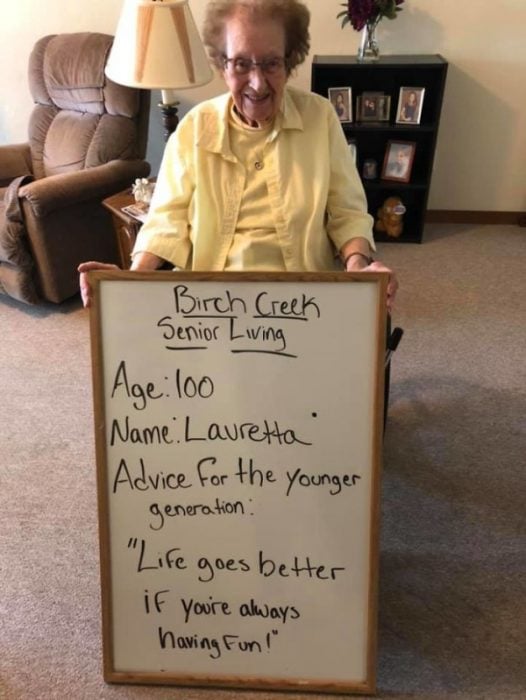 Birch Creek
Senior Living
Age: 100
Name: Lauretta
Advice for the younger
generation:
"Life goes better
if you're always
having fun!"